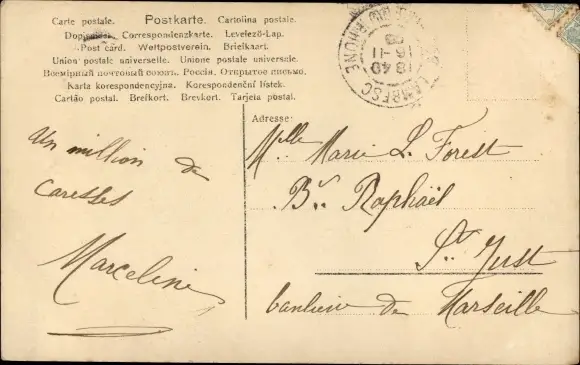 Carte postale. Postkarte. Cartolina postale.
Correspondenzkarte. Levelező-Lap.
Post card. Weltpostverein. Briefkaart.
Union postale universelle. Unione postale universale.
Всемірный почтовый союзъ. Россія. Открытое письмо.
Karta korespondencyjna. Korespondenční lístek.
Cartão postal. Brefkort. Brevkort. Tarjeta postal.
LAMBESC
18 40
16 - 11
09
RHONE
Adresse:
Un million de
caresses
Marceline
Melle Marie L. Forest
Bd. Raphaël
St. Just
banlieue de Marseille